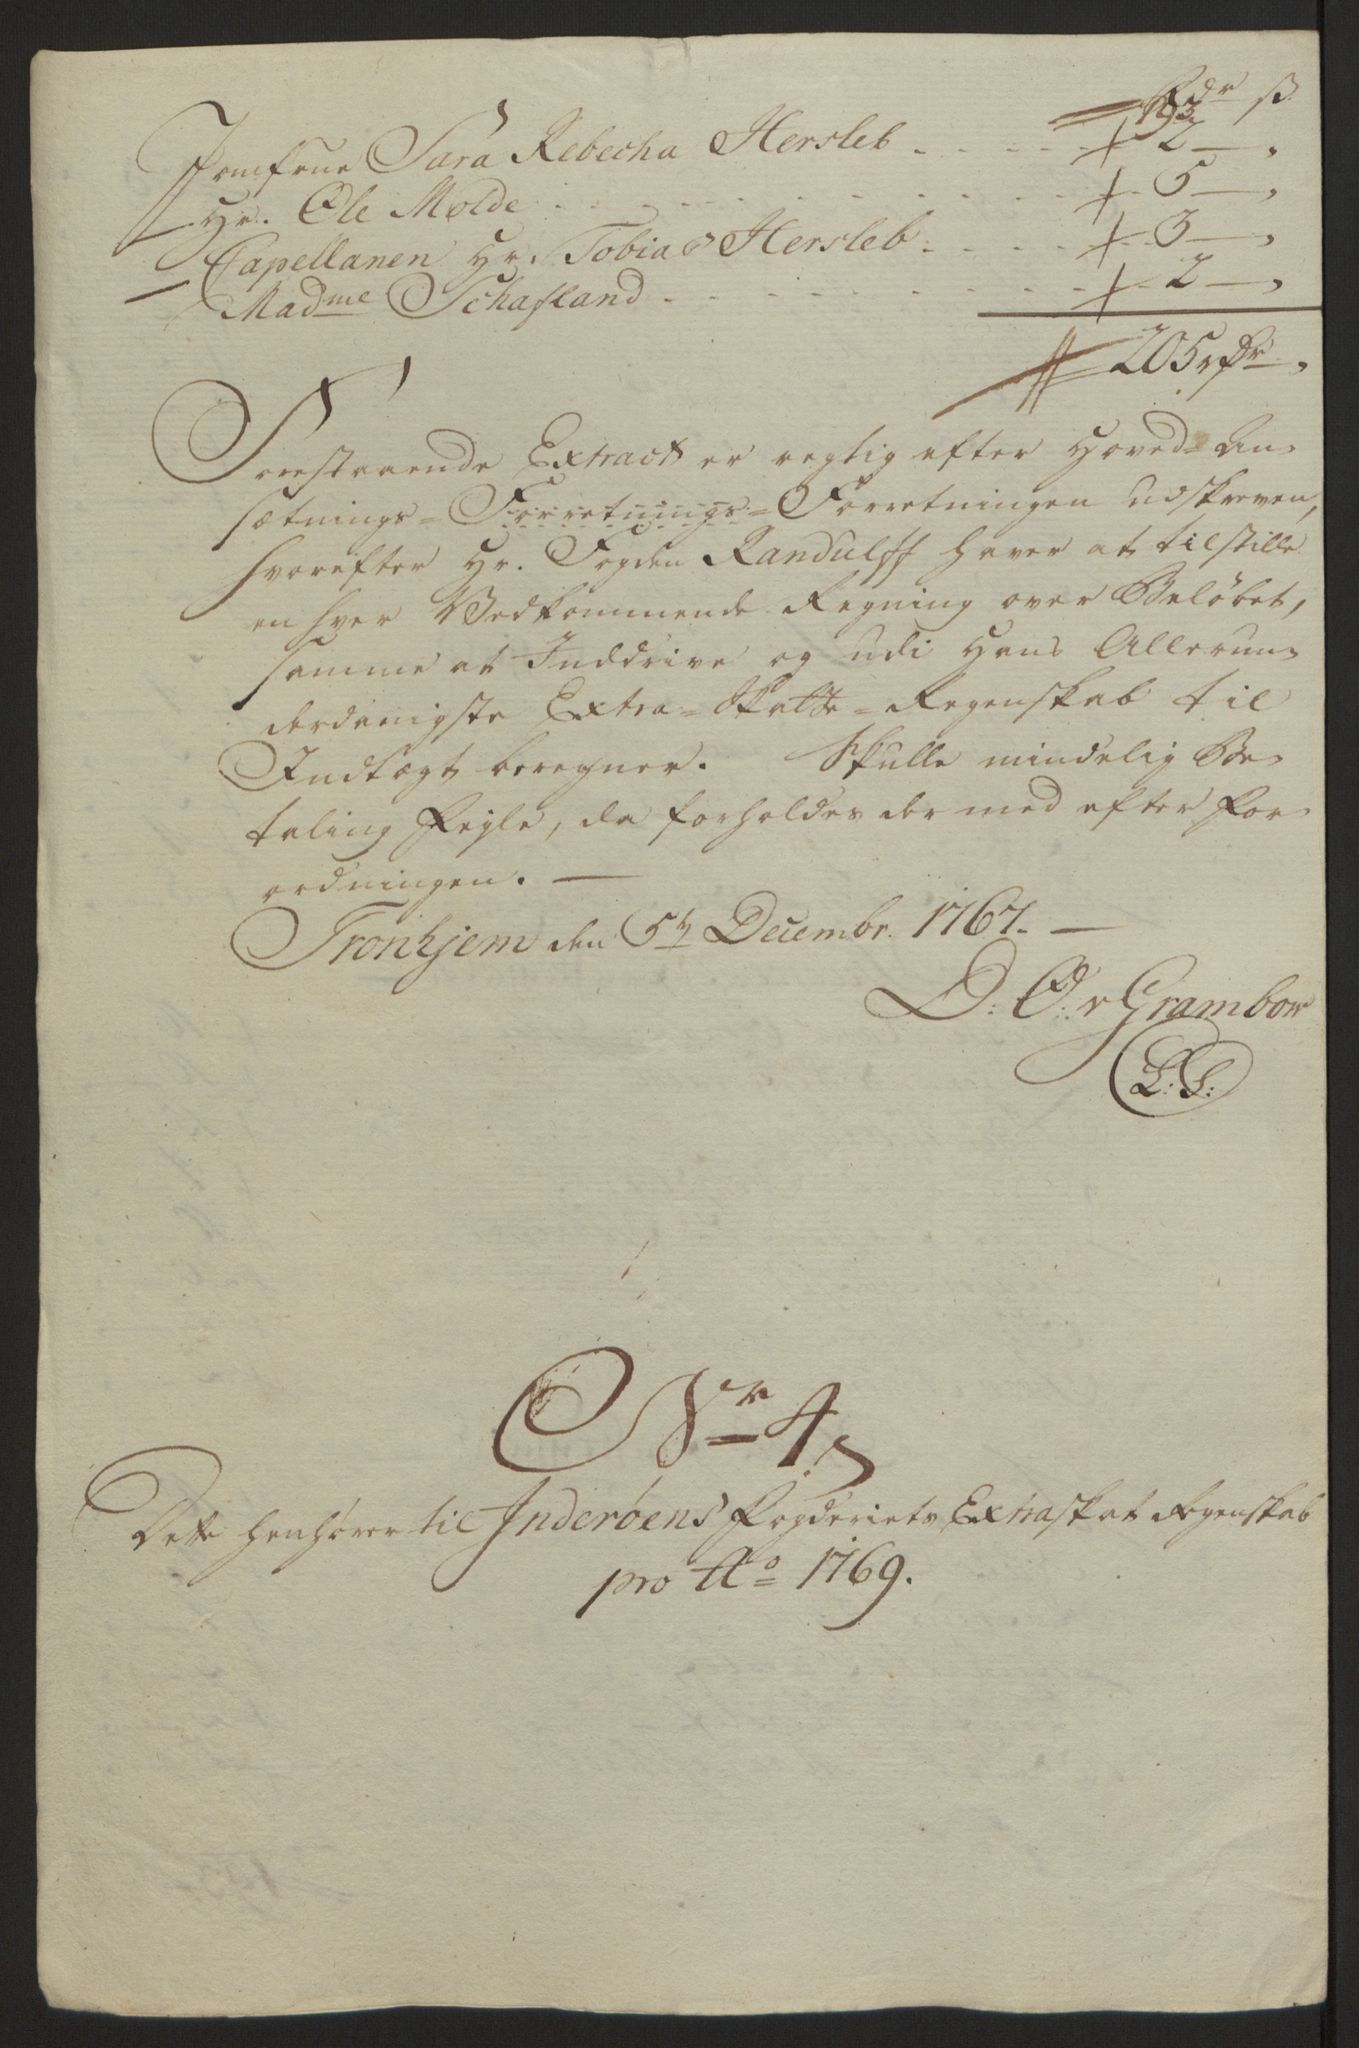 Rdr ß.
193
Jomfrue Sara Rebecha Hersleb . . . . . 2 — ,
Hr. Ole Molde . . . . . . . . . . . . 5 — ,
Capellanen Hr. Tobias Hersleb . . . . . 3 — ,
Madme Schafland . . . . . . . . . . 2 — ,
205 rdr ,
Forestaaende Extract er rigtig efter Hoved-An-
sætnings-Forretnings-Forretningen udskreven,
hvorefter Hr. Fogden Randulff haver at tilstille
en hver Vedkommende Regning over Beløbet,
samme at Inddrive og udi Hans Allerun-
derdanigste Extra-Skatte-Regenskab til
Indtægt beregner. Skulle mindelig Be-
taling feyle, da forholdes der med efter For-
ordningen. —
Tronhjem den 5te Decembr. 1767. —
D: O: v Grambow
L: S:
Nr 4,
Dette henhører til Inderøens Fogderiets Extraskat Regenskab
pro Ao 1769.